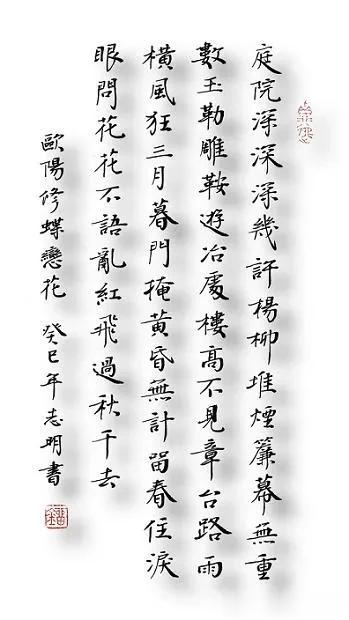 庭院深深深幾許楊柳堆煙簾幕無重
數玉勒雕鞍遊冶處樓高不見章台路雨
橫風狂三月暮門掩黃昏無計留春住淚
眼問花花不語亂紅飛過秋千去
歐陽修蝶戀花 癸巳年志明書